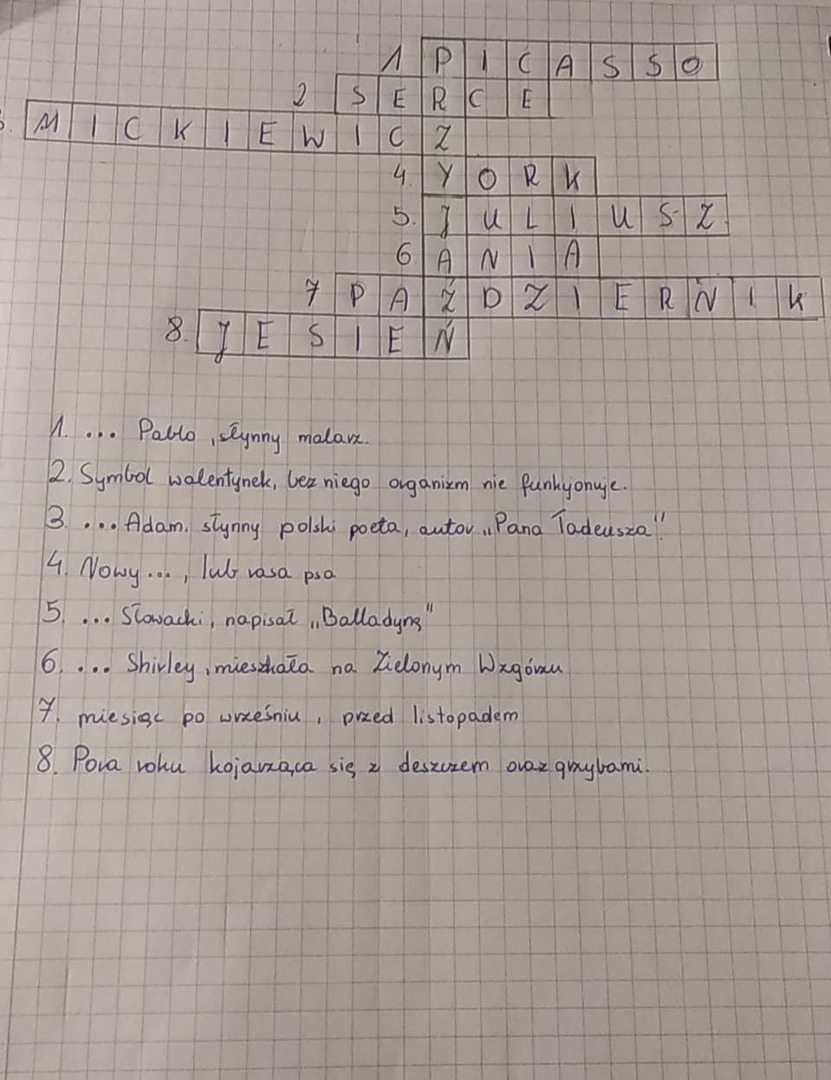 1 PICASSO
2 SERCE
3. MICKIEWICZ
4. YORK
5. JULIUSZ
6 ANIA
7 PAŹDZIERNIK
8. JESIEŃ
1. ... Pablo, słynny malarz.
2. Symbol walentynek, bez niego organizm nie funkyonuje.
3 ... Adam, słynny polski poeta, autor „Pana Tadeusza".
4. Nowy..., lub rasa psa
5. ... Słowacki, napisał „Balladynę"
6. ... Shirley, mieszkała na Zielonym Wzgórzu
7. miesiąc po wrześniu, przed listopadem
8. Pora roku kojarząca się z deszczem oraz grzybami.